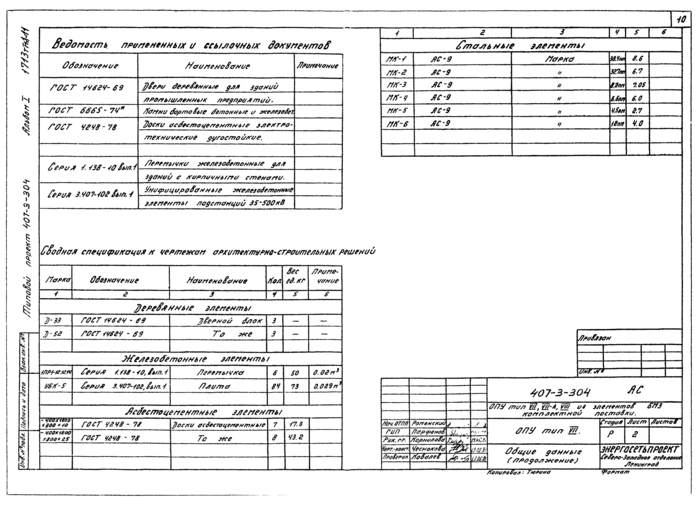 10
1713тм-II
Альбом I
Типовой проект 407-3-304
Ведомость примененных и ссылочных документов
Обозначение Наименование Примечание
ГОСТ 14624-69 Двери деревянные для зданий
промышленных предприятий.
ГОСТ 6665-74* Камни бортовые бетонные и железобет.
ГОСТ 4248-78 Доски асбестоцементные электро-
технические дугостойкие.
Серия 1.138-10 вып.1 Перемычки железобетонные для
зданий с кирпичными стенами.
Серия 3.407-102 вып.1 Унифицированные железобетонные
элементы подстанций 35-500кВ
Сводная спецификация к чертежам архитектурно-строительных решений
Марка Обозначение Наименование Кол. Вес ед. кг Приме-
чание
1 2 3 4 5 6
Деревянные элементы
Д-33 ГОСТ 14624-69 Дверной блок 3 — —
Д-52 ГОСТ 14624-69 То же 3 — —
Железобетонные элементы
Серия 1.138-10, вып.1 Перемычка 6 50 0.02 м³
УБК-5 Серия 3.407-102, вып.1 Плита 84 73 0.029 м³
Асбестоцементные элементы
ГОСТ 4248-78 Доски асбестоцементные 7 17.3
ГОСТ 4248-78 То же 8 43.2
1 2 3 4 5 6
Стальные элементы
МК-1 АС-9 Марка 8.6
МК-2 АС-9 " 6.7
МК-3 АС-9 " 7.05
МК-4 АС-9 " 6.0
МК-5 АС-9 " 2.7
МК-6 АС-9 " 4.0
Привязан
Инв. №
407-3-304 АС
ОПУ тип VI, VII-А, VIII из элементов БМЗ
комплектной поставки.
Нач. ОТПП Роменский
ГИП Парфенов
Рук. гр. Корнилова
Чеснокова
Проверил Ковалев
ОПУ тип VII.
Стадия Лист Листов
Р 2
Общие данные
(продолжение)
ЭНЕРГОСЕТЬПРОЕКТ
Северо-Западное отделение
Ленинград
Копировал: Тюрина Формат
Инв. № подл. Подпись и дата Взам. инв. №